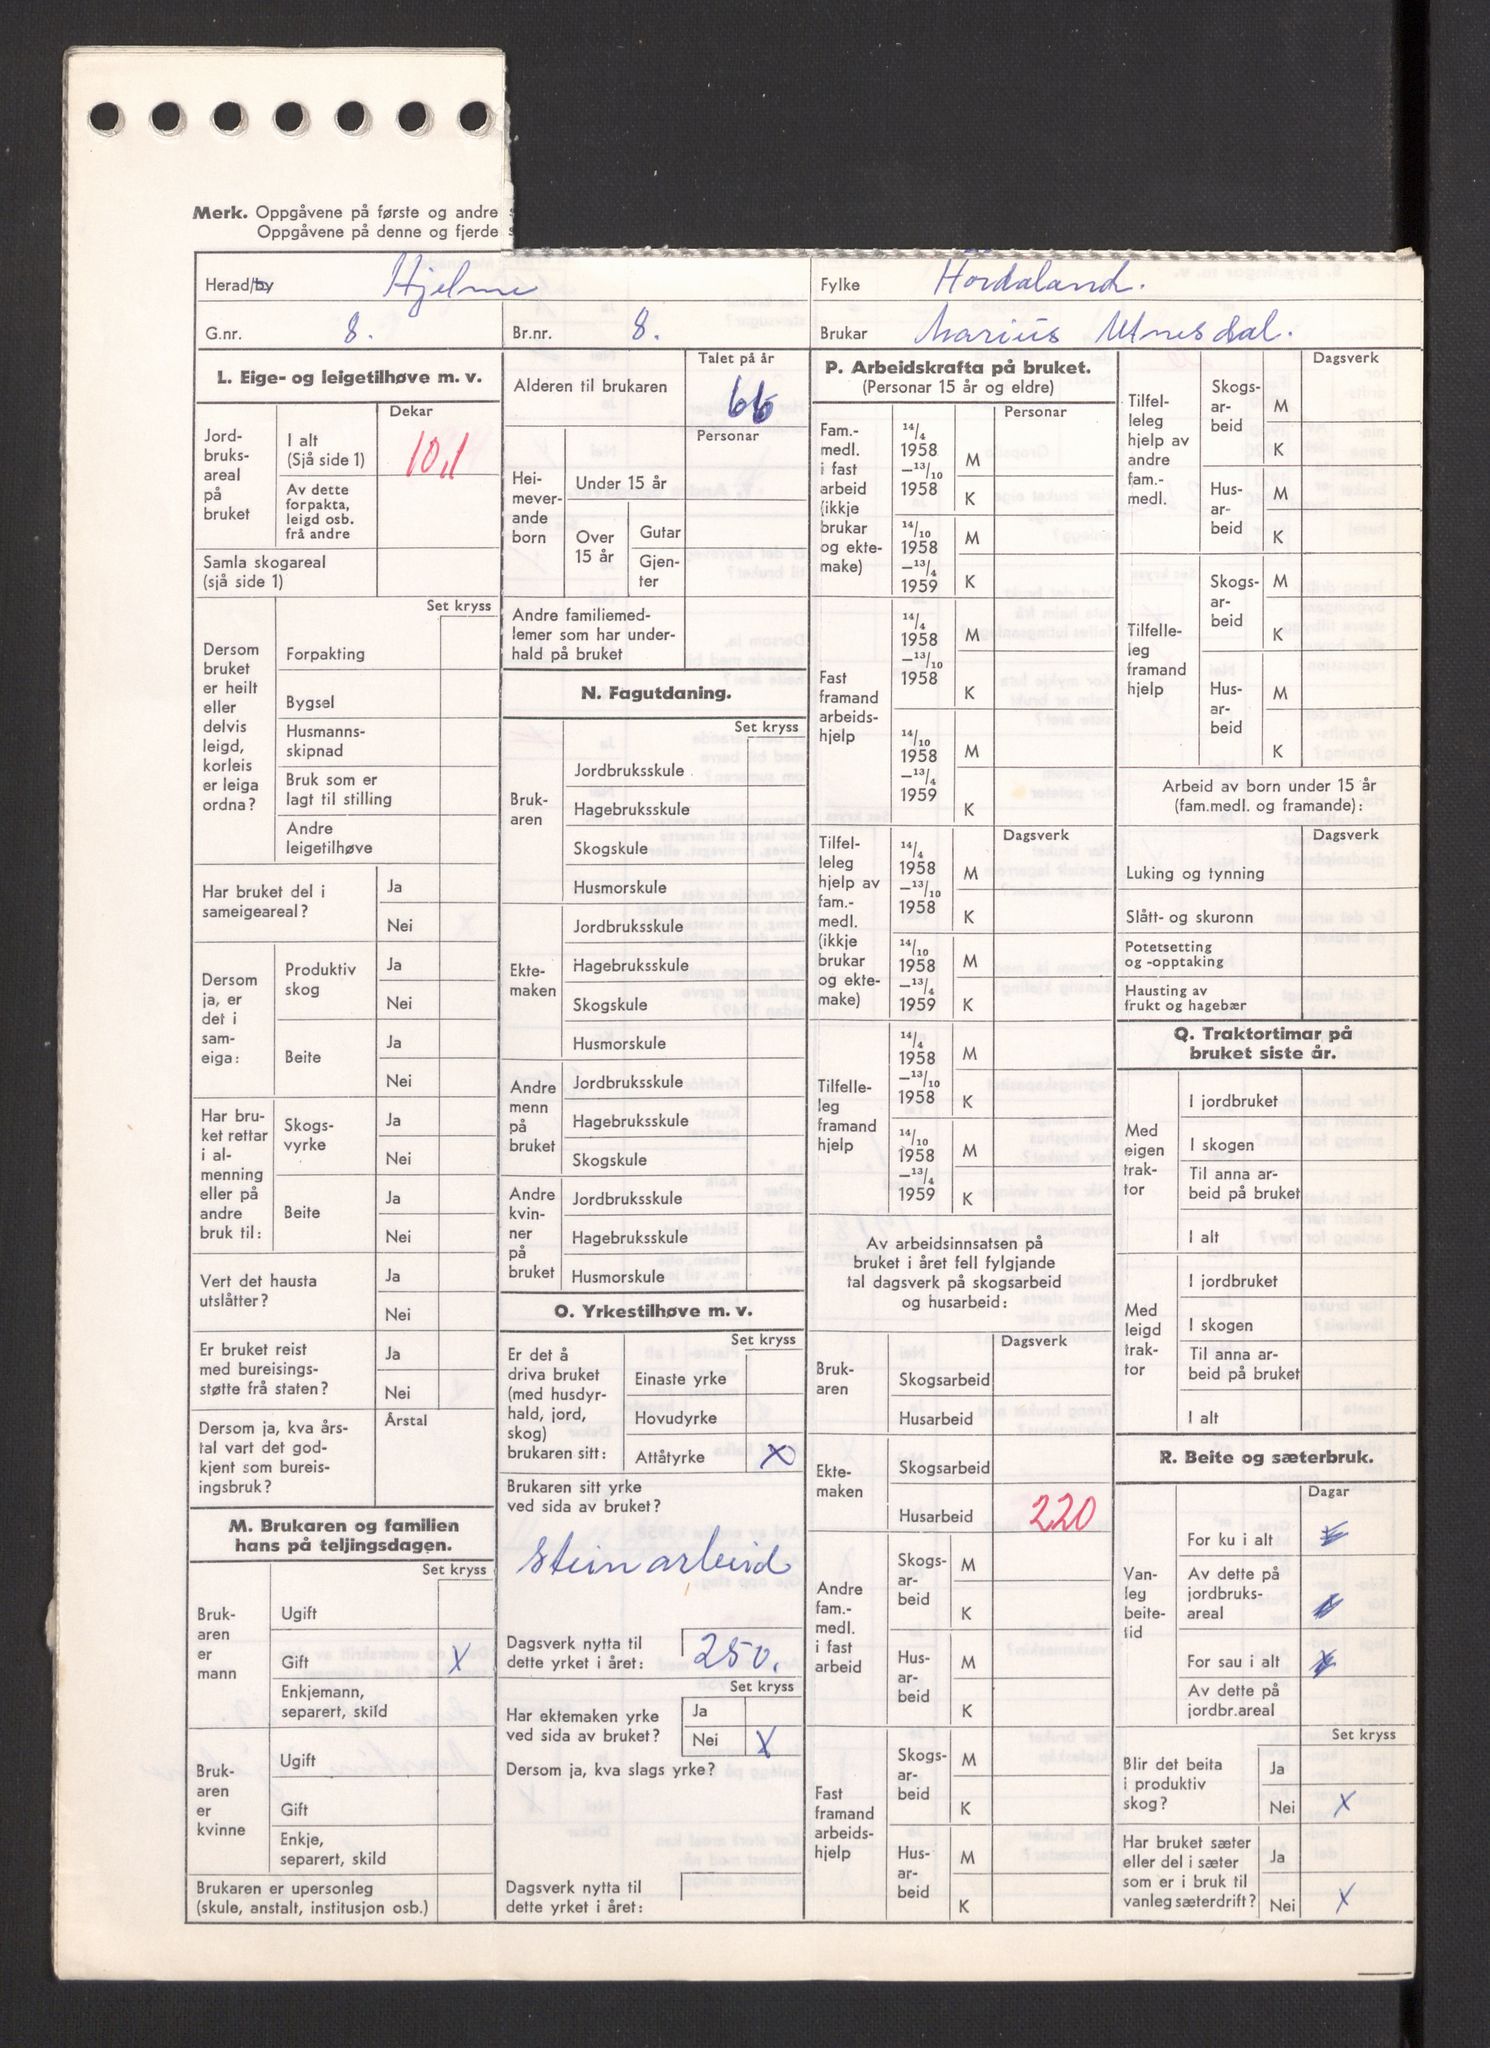 Merk. Oppgåvene på første og andre s
Oppgåvene på denne og fjerde s
Herad/by Hjelme
Fylke Hordaland.
G.nr. 8.
Br.nr. 8.
Brukar Marius Utnesdal.
L. Eige- og leigetilhøve m. v.
Dekar
Jord-
bruks-
areal
på
bruket
I alt
(Sjå side 1)
10,1
Av dette
forpakta,
leigd osb.
frå andre
Samla skogareal
(sjå side 1)
Set kryss
Dersom
bruket
er heilt
eller
delvis
leigd,
korleis
er leiga
ordna?
Forpakting
Bygsel
Husmanns-
skipnad
Bruk som er
lagt til stilling
Andre
leigetilhøve
Har bruket del i
sameigeareal?
Ja
Nei
Dersom
ja, er
det i
sam-
eiga:
Produktiv
skog
Ja
Nei
Beite
Ja
Nei
Har bru-
ket rettar
i al-
menning
eller på
andre
bruk til:
Skogs-
vyrke
Ja
Nei
Beite
Ja
Nei
Vert det hausta
utslåtter?
Ja
Nei
Er bruket reist
med bureisings-
støtte frå staten?
Ja
Nei
Dersom ja, kva års-
tal vart det god-
kjent som bureis-
ingsbruk?
Årstal
M. Brukaren og familien
hans på teljingsdagen.
Set kryss
Bruk-
aren
er
mann
Ugift
Gift X
Enkjemann,
separert, skild
Bruk-
aren
er
kvinne
Ugift
Gift
Enkje,
separert, skild
Brukaren er upersonleg
(skule, anstalt, institusjon osb.)
Talet på år
Alderen til brukaren 66
Personar
Hei-
mever-
ande
born
Under 15 år
Over
15 år
Gutar
Gjen-
ter
Andre familiemed-
lemer som har under-
hald på bruket
N. Fagutdaning.
Set kryss
Bruk-
aren
Jordbruksskule
Hagebruksskule
Skogskule
Husmorskule
Ekte-
maken
Jordbruksskule
Hagebruksskule
Skogskule
Husmorskule
Andre
menn
på
bruket
Jordbruksskule
Hagebruksskule
Skogskule
Andre
kvin-
ner
på
bruket
Jordbruksskule
Hagebruksskule
Husmorskule
O. Yrkestilhøve m. v.
Set kryss
Er det å
driva bruket
(med husdyr-
hald, jord,
skog)
brukaren sitt:
Einaste yrke
Hovudyrke
Attåtyrke X
Brukaren sitt yrke
ved sida av bruket?
steinarbeid
Dagsverk nytta til
dette yrket i året: 250.
Set kryss
Har ektemaken yrke
ved sida av bruket?
Ja
Nei X
Dersom ja, kva slags yrke?
Dagsverk nytta til
dette yrket i året:
P. Arbeidskrafta på bruket.
(Personar 15 år og eldre)
Personar
Fam.-
medl.
i fast
arbeid
(ikkje
brukar
og ekte-
make)
14/4
1958
–13/10
1958
M
K
14/10
1958
–13/4
1959
M
K
Fast
framand
arbeids-
hjelp
14/4
1958
–13/10
1958
M
K
14/10
1958
–13/4
1959
M
K
Dagsverk
Tilfel-
leleg
hjelp av
fam.-
medl.
(ikkje
brukar
og ekte-
make)
14/4
1958
–13/10
1958
M
K
14/10
1958
–13/4
1959
M
K
Tilfelle-
leg
framand
hjelp
14/4
1958
–13/10
1958
M
K
14/10
1958
–13/4
1959
M
K
Av arbeidsinnsatsen på
bruket i året fell fylgjande
tal dagsverk på skogsarbeid
og husarbeid:
Dagsverk
Bruk-
aren
Skogsarbeid
Husarbeid
Ekte-
maken
Skogsarbeid
Husarbeid 220
Andre
fam.-
medl.
i fast
arbeid
Skogs-
ar-
beid
M
K
Hus-
ar-
beid
M
K
Fast
framand
arbeids-
hjelp
Skogs-
ar-
beid
M
K
Hus-
ar-
beid
M
K
Dagsverk
Tilfel-
leleg
hjelp av
andre
fam.-
medl.
Skogs-
ar-
beid
M
K
Hus-
ar-
beid
M
K
Tilfelle-
leg
framand
hjelp
Skogs-
ar-
beid
M
K
Hus-
ar-
beid
M
K
Arbeid av born under 15 år
(fam.medl. og framande):
Dagsverk
Luking og tynning
Slått- og skuronn
Potetsetting
og -opptaking
Hausting av
frukt og hagebær
Q. Traktortimar på
bruket siste år.
Med
eigen
trak-
tor
I jordbruket
I skogen
Til anna ar-
beid på bruket
I alt
Med
leigd
trak-
tor
I jordbruket
I skogen
Til anna ar-
beid på bruket
I alt
R. Beite og sæterbruk.
Dagar
Van-
leg
beite-
tid
For ku i alt
Av dette på
jordbruks-
areal
For sau i alt
Av dette på
jordbr.areal
Set kryss
Blir det beita
i produktiv
skog?
Ja
Nei X
Har bruket sæter
eller del i sæter
som er i bruk til
vanleg sæterdrift?
Ja
Nei X